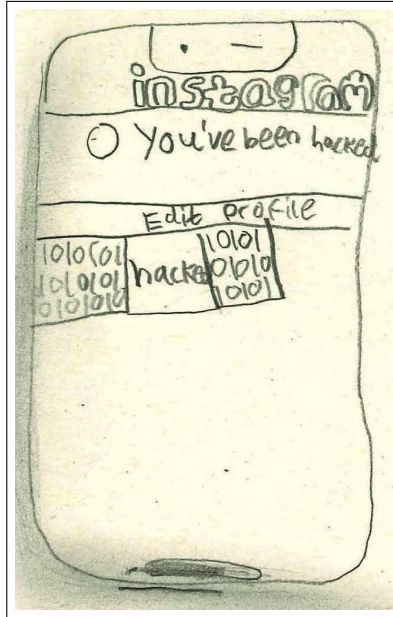 instagram
You've been hacked
Edit profile
1010101
hacked
10101
1010101
01010
010101010
10101